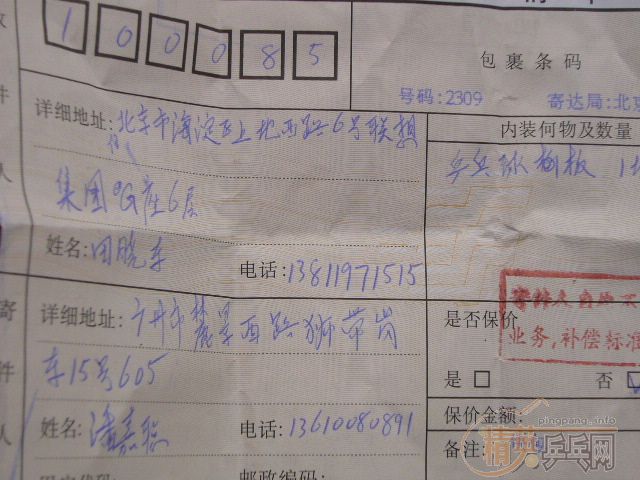 100085
包裹条码
号码:2309 寄达局:北京
件
详细地址:北京市海淀区上地西路6号联想
内装何物及数量
人
集团G座6层
乒乓球 板 1
姓名:田晓东 电话:13811971515
寄
详细地址:广州市麓景西路狮带岗
是否保价
业务,补偿标准
件
东15号605
是 否
保价金额:
pingpang.info
人
姓名:潘嘉 电话:13610080891
备注:
精英乒乓网
邮政编码: